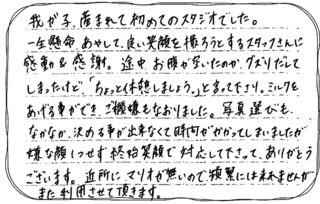 我が子、産まれて初めてのスタジオでした。
一生懸命あやして、良い笑顔を撮ろうとするスタッフさんに
感動&感謝。途中お腹が空いたのか、グズりだして
しまったけど、「ちょっと休憩しましょう。」と言って下さり、ミルクを
あげる事ができ、ご機嫌もなおりました。写真選びも、
なかなか、決める事が出来なくて時間がかかってしまいましたが
嫌な顔1つせず終始笑顔で対応して下さって、ありがとう
ございます。近所にマリオが無いので頻繁には来れませんが
また利用させて頂きます。